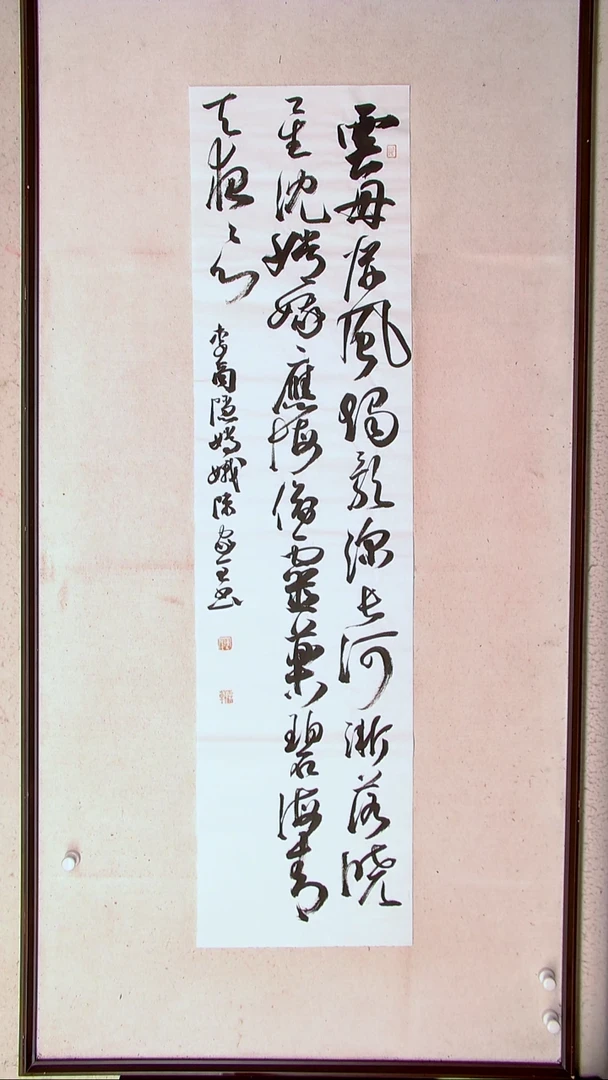 雲母屏風燭影深長河漸落曉
星沈嫦娥應悔偷靈藥碧海青
天夜々心
李商隱嫦娥陳书